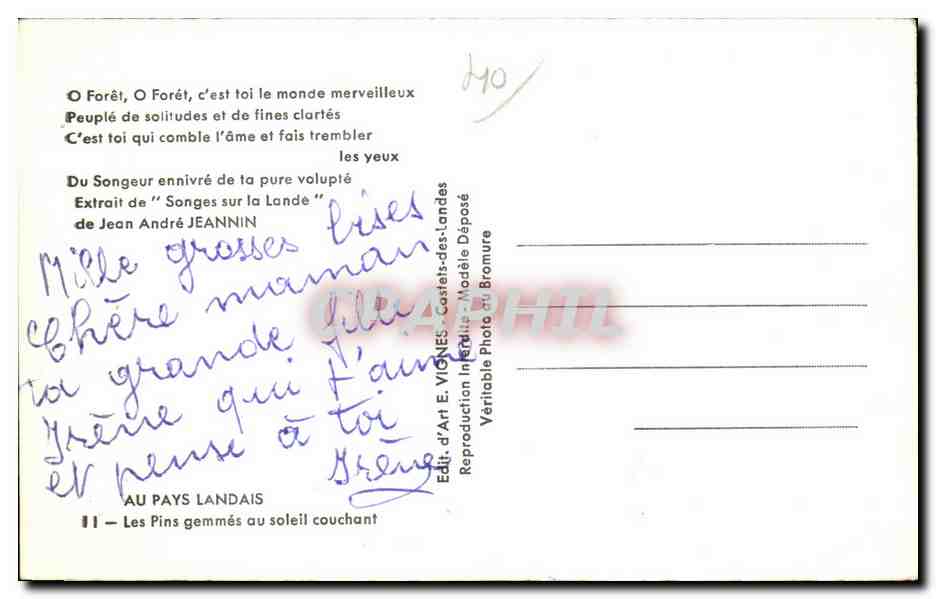 O Forêt, O Forêt, c'est toi le monde merveilleux
Peuplé de solitudes et de fines clartés
C'est toi qui comble l'âme et fais trembler
les yeux
Du Songeur ennivré de ta pure volupté
Extrait de " Songes sur la Lande "
de Jean André JEANNIN
Mille grosses bises
Chère maman
ta grande fille
Irène qui t'aime
et pense à toi
Irène
AU PAYS LANDAIS
11 - Les Pins gemmés au soleil couchant
Edit. d'Art E. VIGNES - Castets-des-Landes
Reproduction Interdite - Modèle Déposé
Véritable Photo au Bromure
CPAPHIL